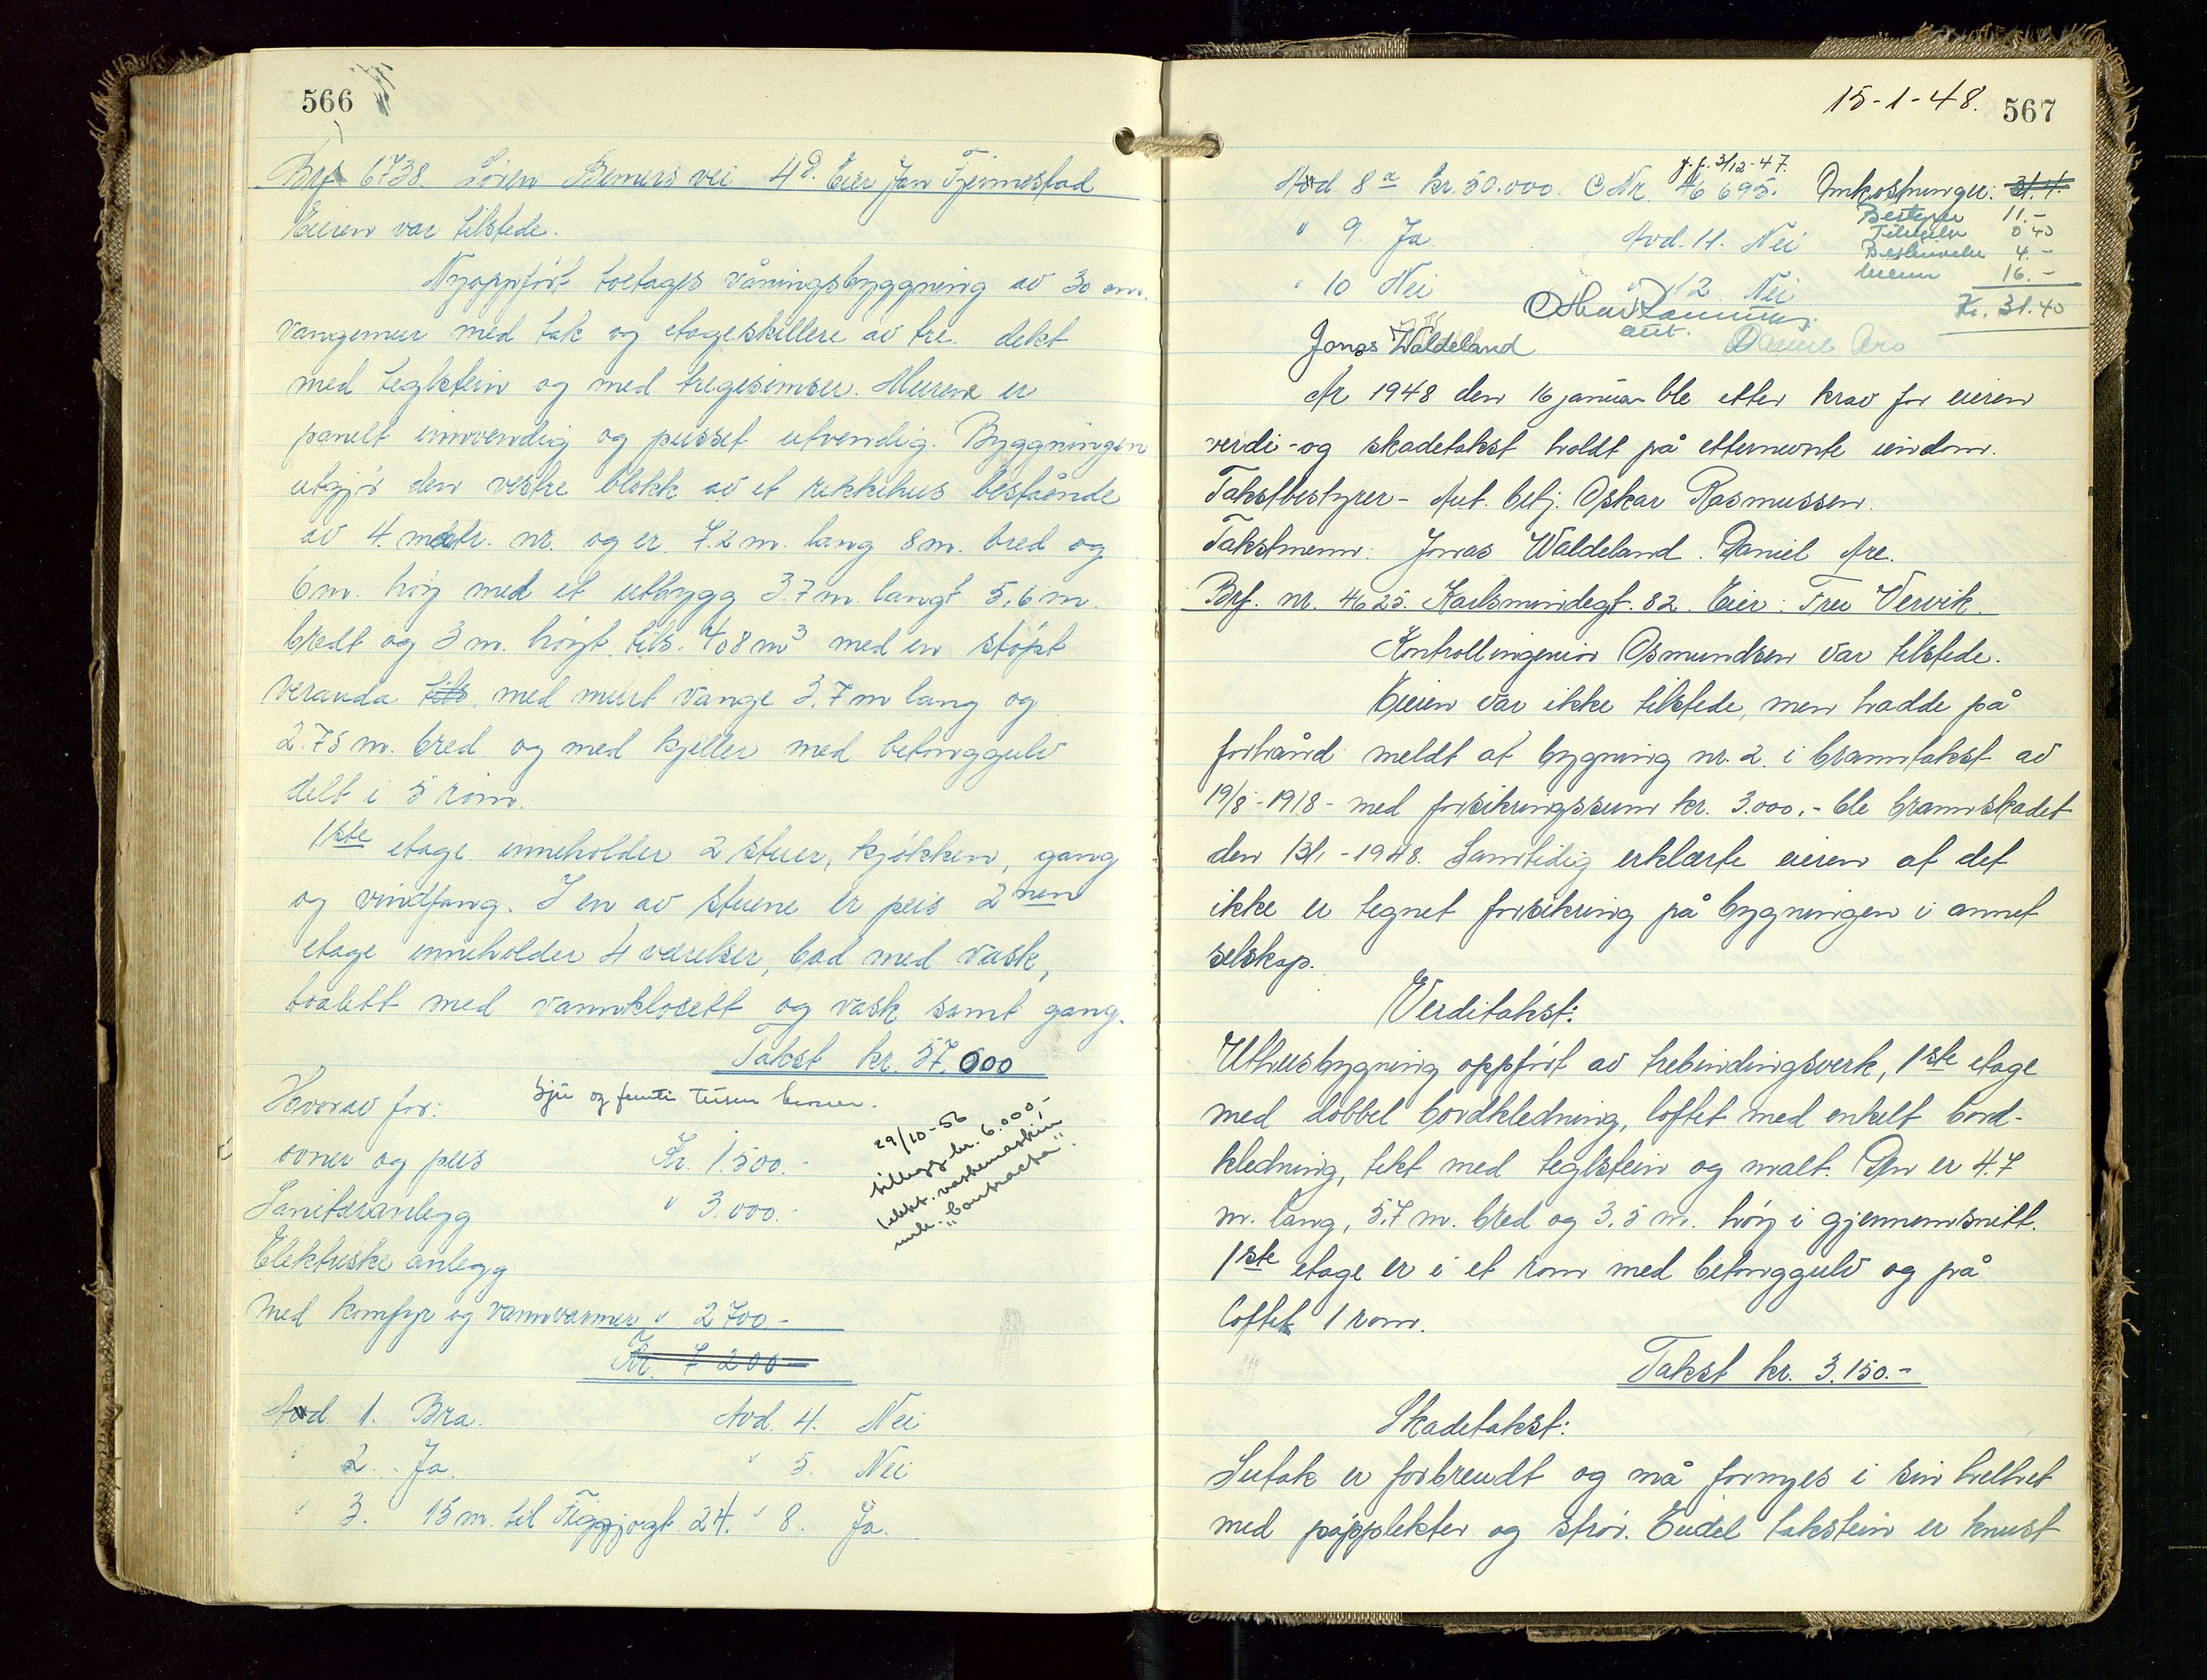 566
Brf 6738. Sören Berners vei 4d. Eier Jan Tjennestad
Eieren var tilstede.
Nyoppført toetages våningsbyggning av 30 cm.
vangemur med tak og etageskillere av tre. dekt
med teglstein og med tregesimser. Murene er
panelt innvendig og pusset utvendig. Byggningen
utgjør den vestre blokk av et rekkehus bestående
av 4. matr. nr. og er 7.2 m. lang 8 m. bred og
6 m. høy med et utbygg 3.7 m. langt 5,6 m.
bredt og 3 m. høyt tils. 408 m3 med en støpt
veranda tils med murt vange 3.7 m lang og
2.75 m. bred og med kjeller med betonggulv
delt i 5 rom.
1ste etage inneholder 2 stuer, kjøkken, gang
og vindfang. I en av stuene er peis 2nen
etage inneholder 4 værelser, bad med vask,
toalett med vannklosett og vask samt gang.
Takst kr. 57.000
Hvorav for: Sju og femti tusen kroner.
ovner og peis Kr. 1.500.-
Sanitæranlegg " 3.000.-
Elektriske anlegg
med komfyr og vannvarmer " 2700-
Kr. 7200-
29/10-56
tillegg kr. 6.000,-
elekt. vaskemaskin
mrk. "Contracta".
Avd. 1. Bra. Avd. 4. Nei
" 2. Ja. " 5. Nei
" 3. 15 m. til Figgjogt. 24. " 8. Ja.
15-1-48. 567
g.f. 3/12-47.
Avd 8a kr. 50.000. C Nr. 46695. Omkostninger: 31.4
Bestyrer 11.-
" 9. Ja. Avd. 11. Nei Tilsigelse 0.40
Beskrivelse 4.-
" 10 Nei " 12 Nei Menn 16.-
Kr. 31.40
Oskar Rasmussen
aut.
Jonas Waldeland Daniel Are
År 1948 den 16 januar ble etter krav for eieren
verdi- og skadetakst holdt på etternevnte eiendom.
Takstbestyrer - Aut. betj. Oskar Rasmussen.
Takstmenn: Jonas Waldeland. Daniel Are.
Brf. nr. 4625. Karlsmindegt. 82. Eier: Fru Vervik.
Kontrollingeniør Osmundsen var tilstede.
Eieren var ikke tilstede, men hadde på
forhånd meldt at bygning nr. 2. i branntakst av
19/8-1918 - med forsikringssum kr. 3.000.- ble brannskadet
den 13/1-1948. Samtidig erklærte eieren at det
ikke er tegnet forsikring på bygningen i annet
selskap.
Verditakst:
Uthusbygning oppført av trebindingsverk, 1ste etage
med dobbel bordkledning, loftet med enkelt bord-
kledning, tekt med teglstein og malt. Den er 4.7
m. lang, 5.7 m. bred og 3.5 m. høy i gjennemsnitt.
1ste etage er i et rom med betonggulv og på
loftet 1 rom.
Takst kr. 3.150.-
Skadetakst:
Sutak er forbrendt og må fornyes i sin helhet
med papplekter og strø. Endel takstein er knust